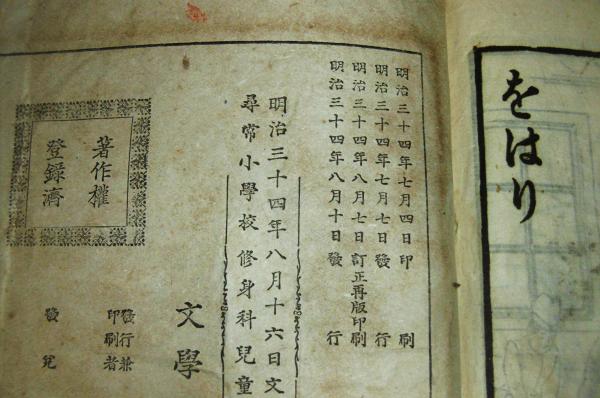 をはり
明治三十四年七月四日印刷
明治三十四年七月七日發行
明治三十四年八月七日訂正再版印刷
明治三十四年八月十日發行
明治三十四年八月十六日文
尋常小學校修身科兒童
文學
著作權
登録濟
發行兼
印刷者
發兌